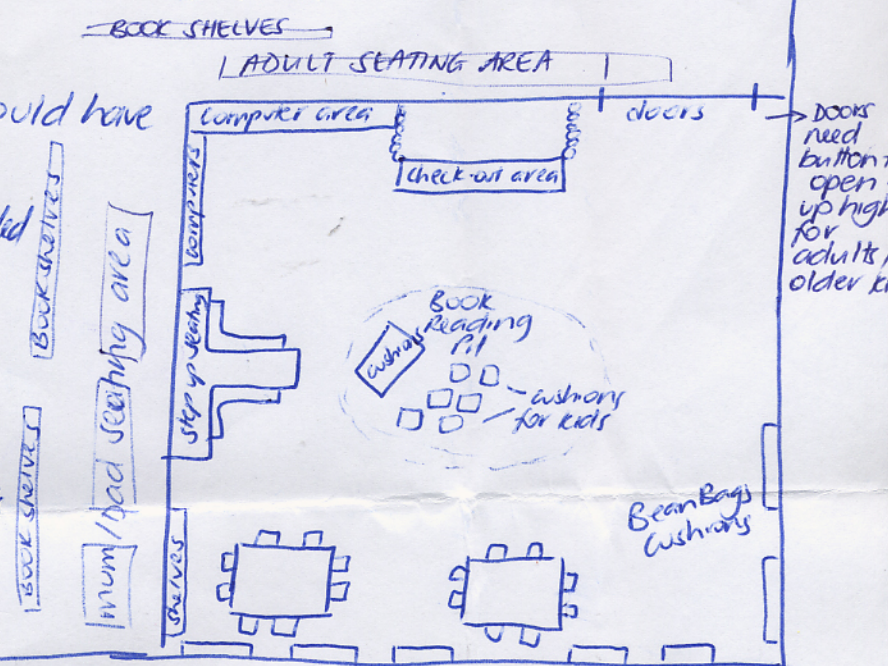 BOOK SHELVES
ADULT SEATING AREA
ould have
computer area
doors
DOORS
need
button
open
up high
for
adults/
older
check-out area
computers
Book shelves
mum/Dad seating area
step up seating
BOOK
Reading
Pit
cushions
cushions
for kids
BOOK shelves
BeanBags
cushions
shelves